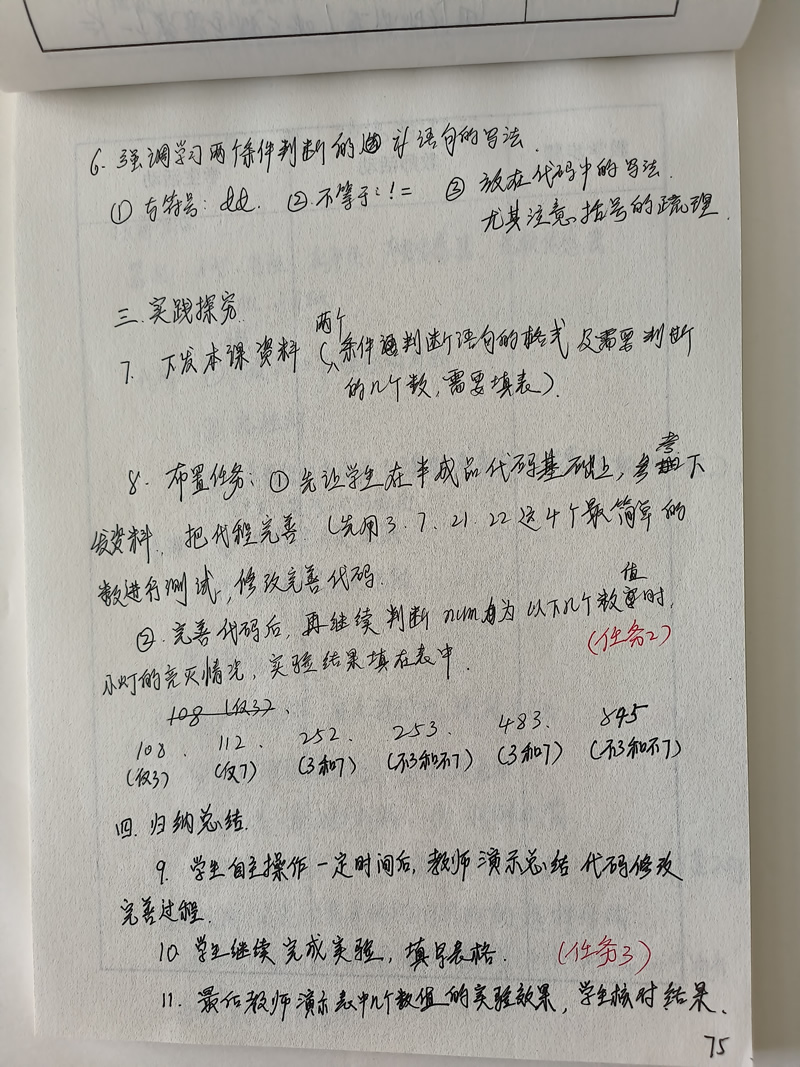 6. 强调学习两个条件判断的语句的写法.
① 与符号: &&. ② 不等于: != ③ 放在代码中的写法.
尤其注意括号的疏理.
三. 实践探究.
两个
7. 下发本课资料 (条件判断语句的格式及需要判断
的几个数, 需要填表).
8. 布置任务: ① 先让学生在半成品代码基础上, 参考下
发资料, 把代程完善. (先用3. 7. 21. 22 这4个最简单的
数进行测试, 修改完善代码.
② 完善代码后, 再继续判断 num为以下几个数值时,
(任务2)
小灯的亮灭情况, 实验结果填在表中.
108 (仅3).
108. 112. 252. 253. 483. 895
(仅3) (仅7) (3和7) (不3和不7) (3和7) (不3和不7)
四. 归纳总结.
9. 学生自主操作一定时间后, 教师演示总结代码修改
完善过程.
10. 学生继续完成实验, 填写表格. (任务3)
11. 最后教师演示表中几个数值的实验效果, 学生核对结果.
75